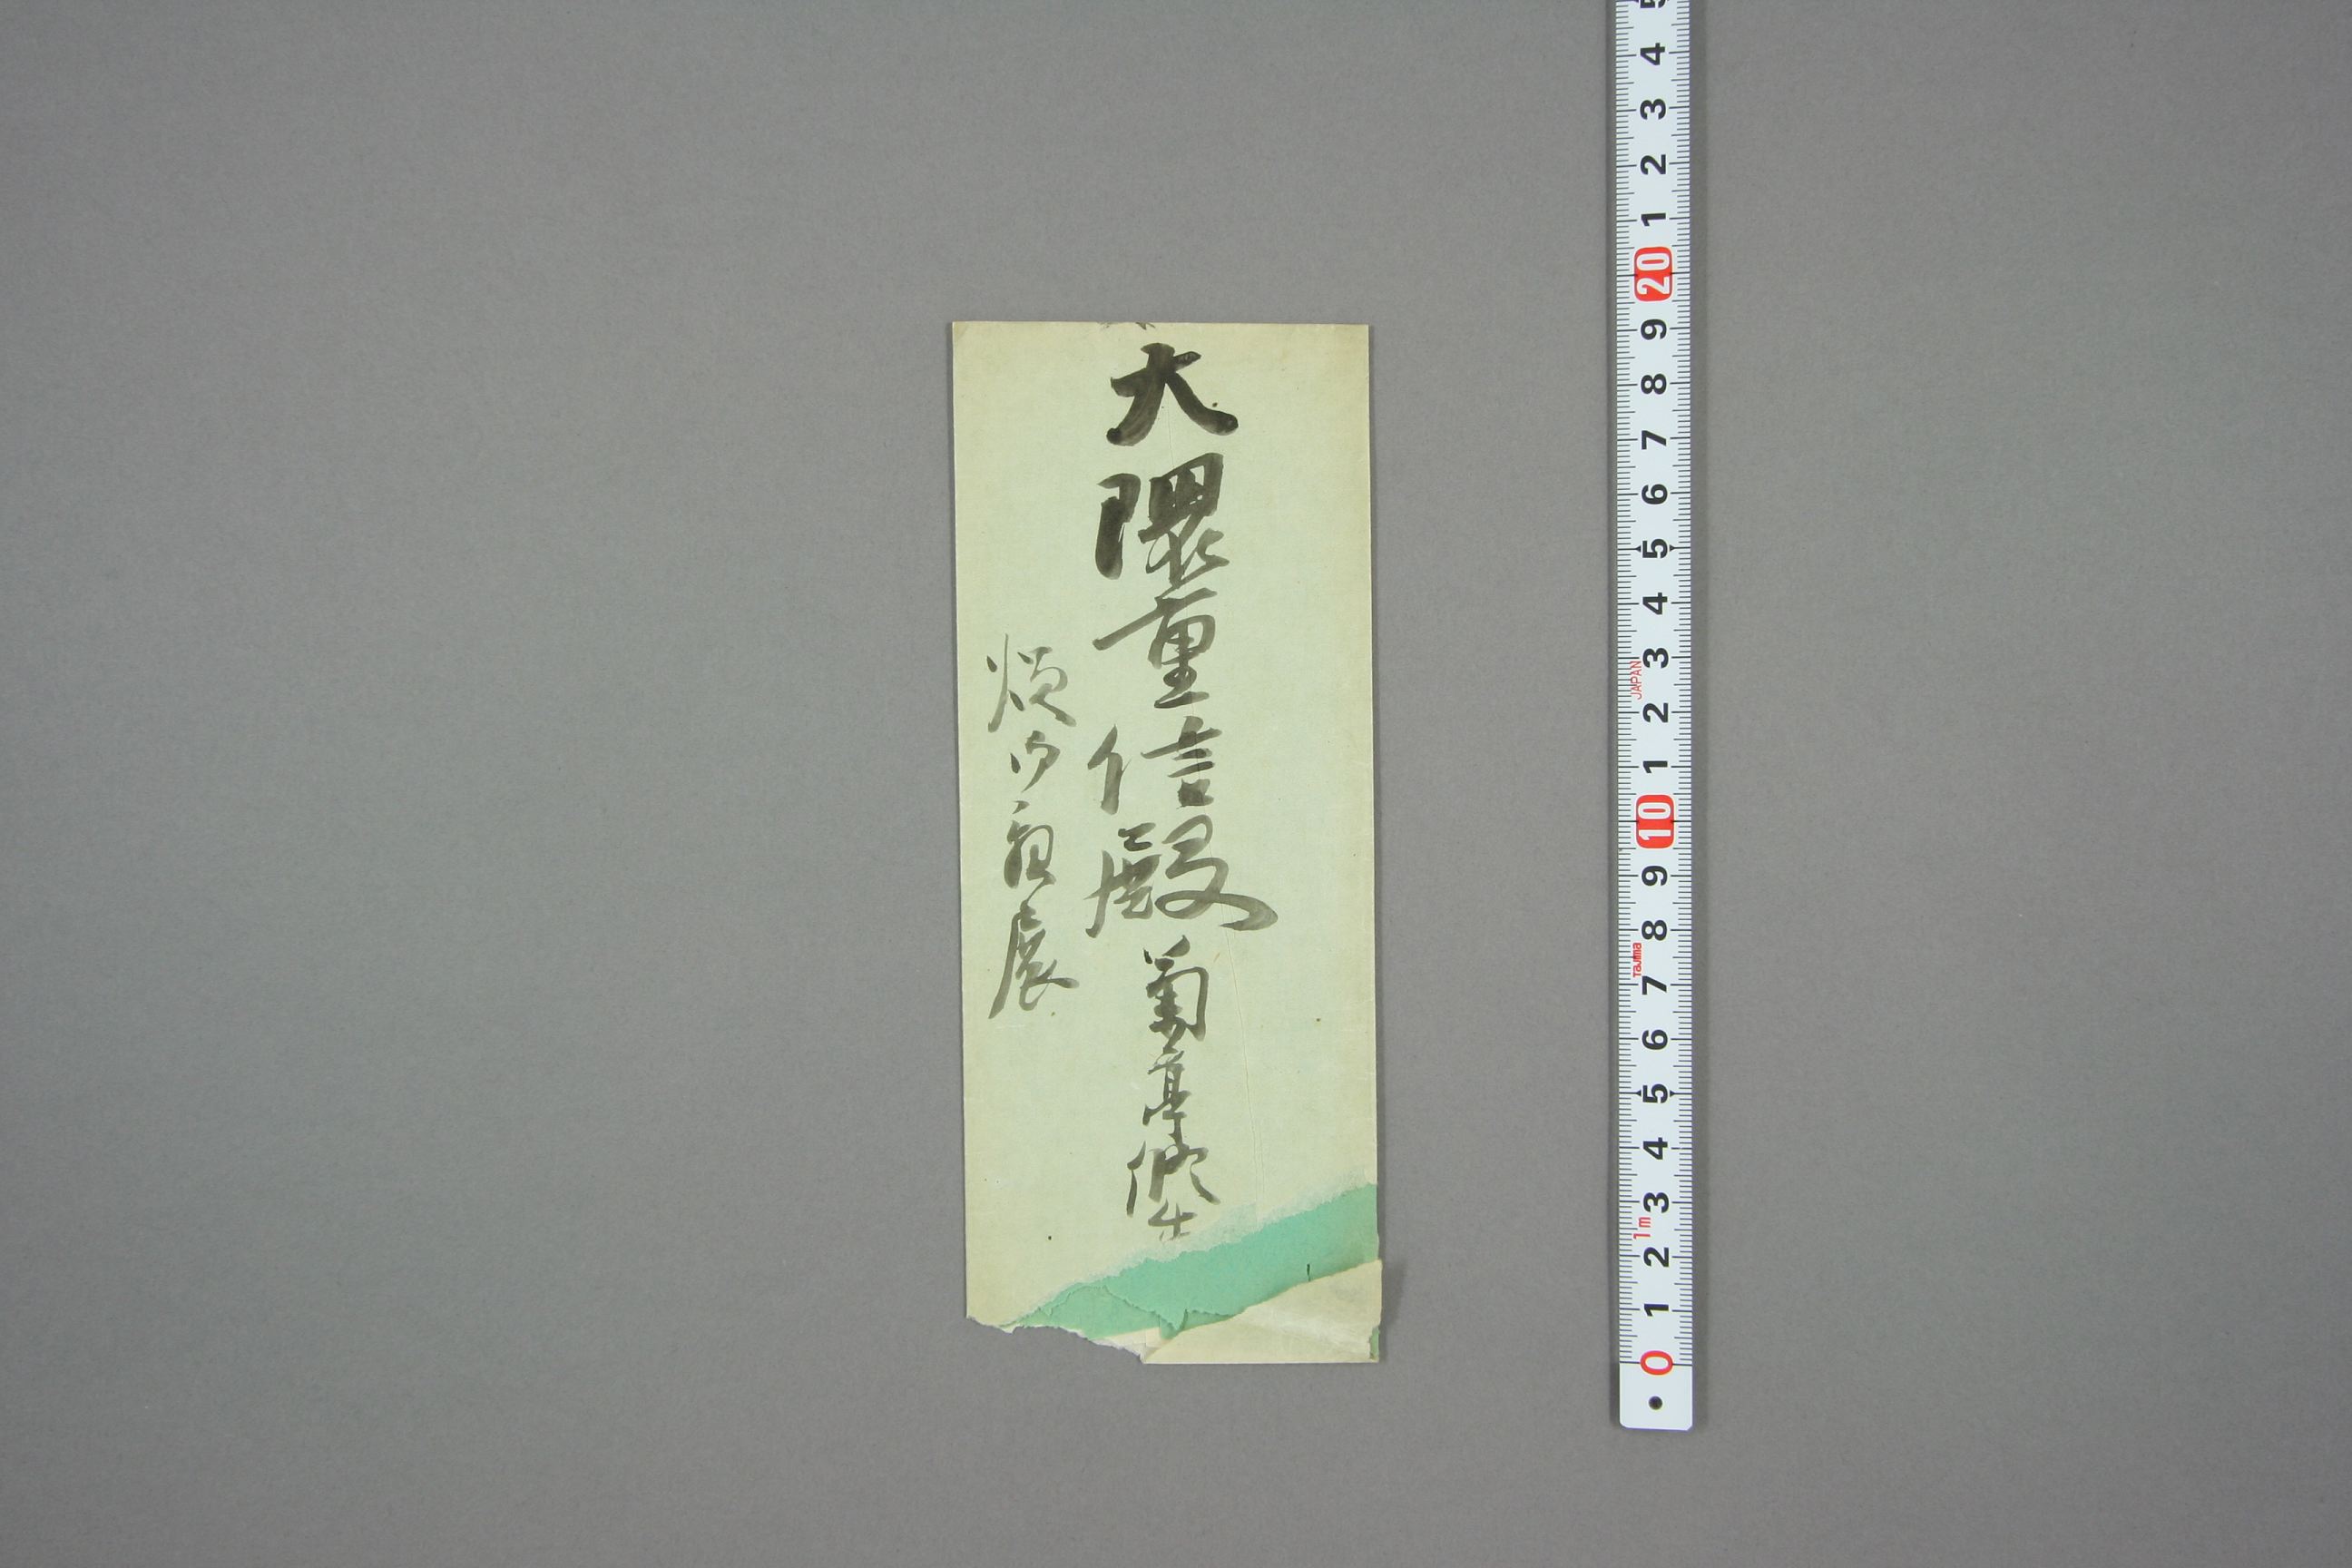 大隈重信殿 菊亭脩季
煩御親展
5 4 3 2 1 20 9 8 7 6 5 4 3 2 1 10 9 8 7 6 5 4 3 2 1 0
JAPAN
Tajima
1m